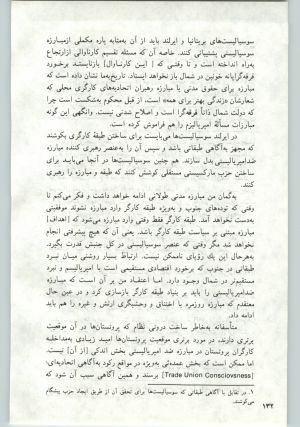 سوسیالیست‌های بریتانیا و ایرلند باید از آن به‌مثابه پاره مکملی ازمبارزه
سوسیالیستی پشتیبانی کنند. خاصه آن که مسئله تقسیم کارناوالی ازارتجاع
به‌راه انداخته است و تا وقتـی کـه [ایـن کارنـاوال] بازنایستـد برخـورد
فرقه‌گرایانه خونین در شمال باز نخواهد ایستاد. تاریخ‌بما نشان داده است که
مبارزه برای حقوق مدنی یا مبارزه رهبران اتحادیه‌های کارگری محلی که
شعارشان «زندگی بهتر برای همه» است، از قبل محکوم به‌شکست است چرا
که دولت شمال ذاتاً فرقه‌گرا است و اصلاح شدنی نیست. وانگهی این گونه
مبارزات مسألهٔ امپریالیزم را هم فراموش کرده است.
در ایرلند سوسیالیست‌ها می‌بایست برای ساختن طبقهٔ کارگری بکوشند
که مجهز به‌آگاهی طبقاتی باشد و سپس آن را به‌عنصر رهبری کننده مبارزه
ضدامپریالیستی بدل سازند. هم چنین سوسیالیست‌ها در آنجا می‌بایـد برای
ساختن حزب مارکسیستی مستقلی کوشش کنند که طبقه و مبارزه را رهبری
کند.
به‌گمان من مبارزه مدتی طولانی ادامه خواهد داشت و فکر می‌کنم تا
وقتی که توده‌های جنوب و به‌ویژه طبقه کارگر وارد مبارزه نشوند موفقیتی
به‌دست نخواهد آمد. طبقه کارگر فقط وقتی وارد مبارزه می‌شود که [اهداف]
مبارزه مبتنی بر سیاست طبقه کارگر باشد. یعنی آن که هیچ پیشرفتی انجام
نخواهد شد مگر وقتی که عنصر سوسیالیستی در کل جنبش قدرت بگیرد.
به‌هرحال این یك رؤیای ناممکن نیست. ارتباط بسیار روشنی میان نبرد
طبقاتی در جنوب که برخورد اقتصادی مستقیمی است با امپریالیسم و نبرد
مستقیم‌تر در شمال وجود دارد. امـا اعتقـاد مـن بر آن اسـت کـه مبـارزه
ضدامپریالیستی را باید بر بنیاد طبقه کارگر بازسازی کرد و در عین حال
معتقدم که مبارزه روزمره با اختناق و وحشیگری ارتش و غیره را هم باید
ادامه داد.
متأسفانه به‌خاطر ساخت درونی نظام که پروتستان‌ها در آن موقعیت
برتری دارند، در مورد برتری موقعیت پروتستان‌ها امیـد زیـادی به‌مداخلـه
کارگران پروتستان در مبارزه ضد امپریالیستی بخش اندکی [از آن] نیست.
اما ممکن است که بخش عمده‌ئی به‌ویژه در مواقع رکود به‌آگاهی اتحادیه‌ای،
[Trade Union Consciovsness] برسند و همین آگاهی سبب آن شود که
۱. در تقابل با آگاهی طبقاتی که سوسیالیست‌ها برای تحقق آن از طریق ایجاد حزب پیشگام
می‌کوشند.
۱۳۲